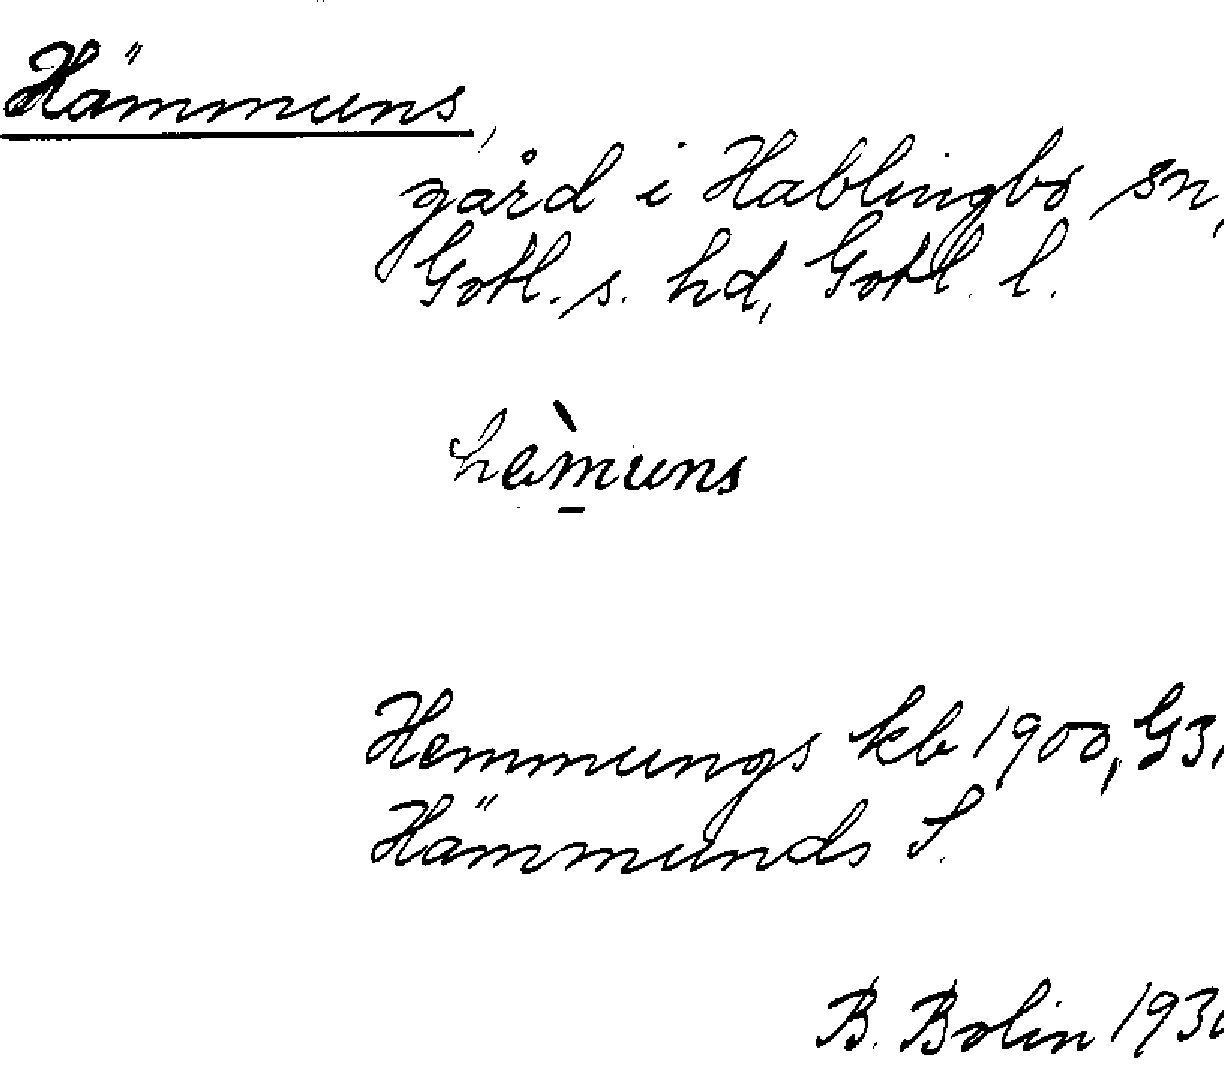 Hämmuns,
gård i Hablingbo sn,
Gotl. s. hd, Gotl. l.
Hemmungs kb 1900, G3,
Hämmunds S.
B. Bolin 193